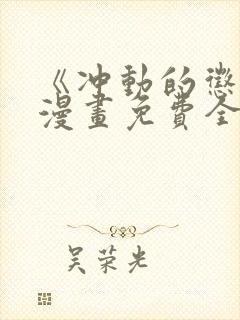 《冲動的懲
漫畫免費全
吴荣光